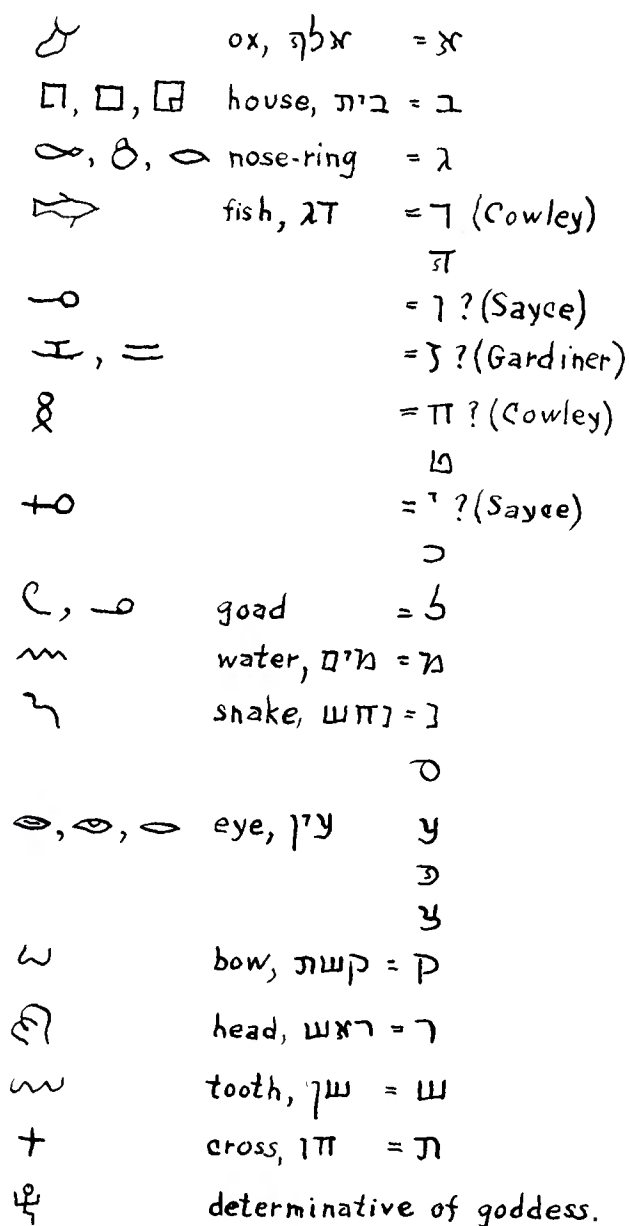 ox, אלף = א
house, בית = ב
nose-ring = ג
fish, דג = ד (Cowley)
ה
= ו ? (Sayce)
= ז ? (Gardiner)
= ח ? (Cowley)
ט
= י ? (Sayce)
כ
goad = ל
water, מים = מ
snake, נחש = נ
ס
eye, עין ע
פ
צ
bow, קשת = ק
head, ראש = ר
tooth, שן = ש
cross, תו = ת
determinative of goddess.